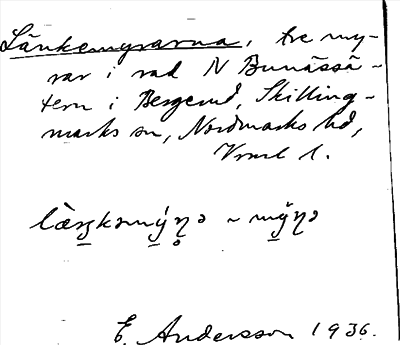 Länkemyrarna, tre my-
rar i rad N Bunässä-
tern i Bergerud, Skilling-
marks sn, Nordmarks hd,
Vrml l.
E. Andersson 1936.